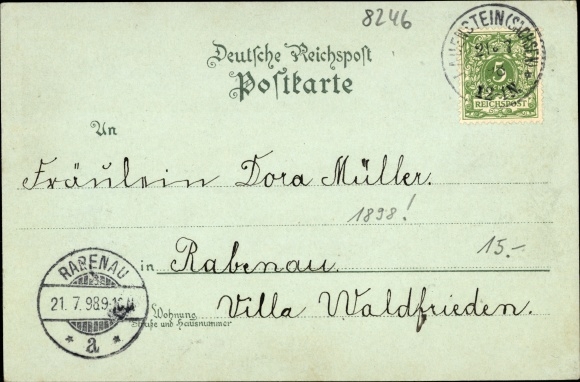 8246
LAUENSTEIN (SACHSEN)
21. 7
12-1N.
5
REICHSPOST
Deutsche Reichspost
Postkarte
An
Fräulein Dora Müller.
1898!
15.-
in Rabenau.
RABENAU
21. 7. 98 9-10
* a *
Wohnung
Straße und Hausnummer
Villa Waldfrieden.